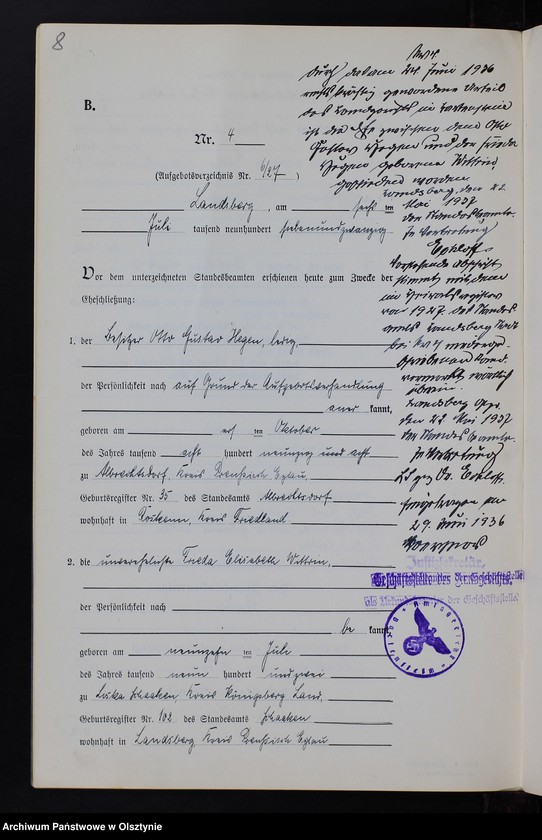 8
B.
Nr. 4
(Aufgebotsverzeichnis Nr. 6/27)
Landsberg, am sechsten
Juli tausend neunhundert siebenundzwanzig
Vor dem unterzeichneten Standesbeamten erschienen heute zum Zwecke der
Eheschließung:
1. der Besitzer Otto Gustav Hagen, ledig,
der Persönlichkeit nach auf Grund der Aufgebotsverhandlung
aner kannt,
geboren am elf ten Oktober
des Jahres tausend acht hundert neunzig und acht
zu Albrechtsdorf, Kreis Preußisch Eylau
Geburtsregister Nr. 35 des Standesamts Albrechtsdorf
wohnhaft in Kreis Friedland
2. die unverehelichte Frieda Elisabeth Wittrin,
der Persönlichkeit nach
be kannt,
geboren am neunzehn ten Juli
des Jahres tausend neun hundert und zwei
zu Schaaken, Kreis Königsberg Land,
Geburtsregister Nr. 102 des Standesamts Schaaken
wohnhaft in Landsberg Kreis Preußisch Eylau
Nr. 4
Durch das am 24. Juni 1936
rechtskräftig gewordene Urteil
des Landgerichts in Bartenstein
ist die Ehe zwischen dem Otto
Gustav Hagen und der Frieda
Hagen geborene Wittrin
geschieden worden.
Landsberg, den 22.
Mai 1937
Der Standesbeamte.
In Vertretung
Vorstehende Abschrift
stimmt mit dem
im
von 1927 des Standes
amts Landsberg Stadt
bei Nr. 4
vermerk wörtlich
überein.
Landsberg Ostpr.
den 22. Mai 1937
Der Standesbeamte.
In Vertretung
Eingetragen am
29. 1936
Justizsekretär,
Geschäftsstelle des Amtsgerichts.
als Urkundsbeamter der Geschäftsstelle.
Amtsgericht
Archiwum Państwowe w Olsztynie